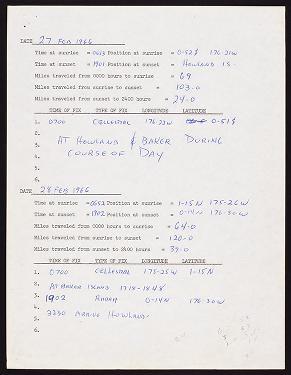 DATE 27 FEB 1966
Time at sunrise = 0653 Position at sunrise = 0-52S 176-21W
Time at sunset = 1901 Position at sunset = HOWLAND IS-
Miles traveled from 0000 hours to sunrise = 69
Miles traveled from sunrise to sunset = 103.0
Miles traveled from sunset to 2400 hours = 24.0
TIME OF FIX TYPE OF FIX LONGITUDE LATITUDE
1. 0700 CELLESTIAL 176-22W 0-51S
2.
3. AT HOWLAND & BAKER DURING
4. COURSE OF DAY
5.
6.
DATE 28 FEB 1966
Time at sunrise = 0652 Position at sunrise = 1-15N 175-26W
Time at sunset = 1902 Position at sunset = 0-14N 176-30W
Miles traveled from 0000 hours to sunrise = 64.0
Miles traveled from sunrise to sunset = 120.0
Miles traveled from sunset to 2400 hours = 39.0
TIME OF FIX TYPE OF FIX LONGITUDE LATITUDE
1. 0700 CELLESTIAL 175-25W 1-15N
2. AT BAKER ISLAND 1718-1848
3. 1902 RADAR 0-14N 176-30W
4. 2330 ARRIVE HOWLAND.
5.
6.